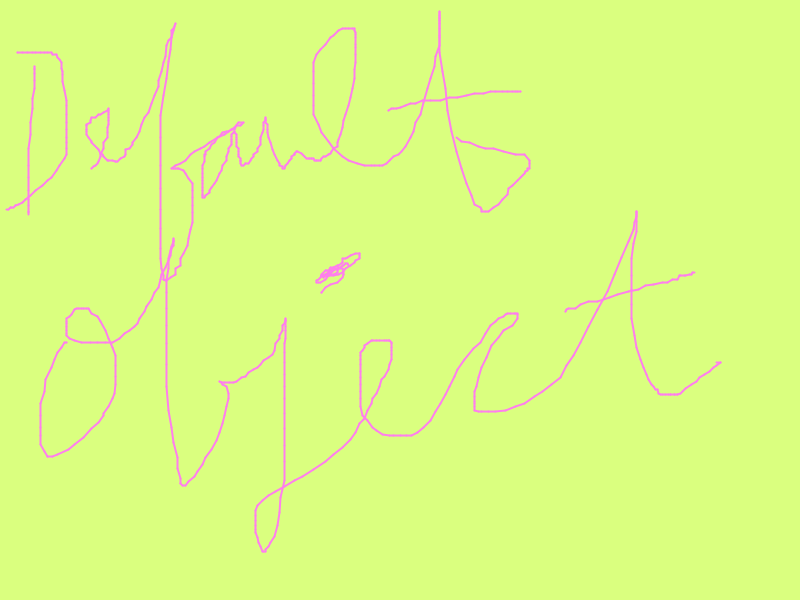 Default
object